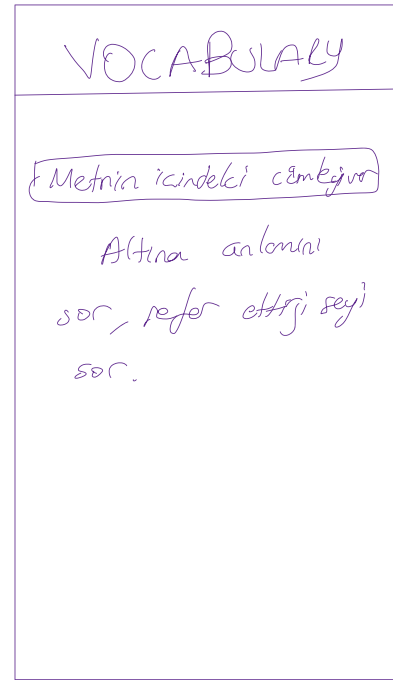 VOCABULARY
Metnin icindeki
Altına anlamını
sor, refer ettiği seyi
sor.